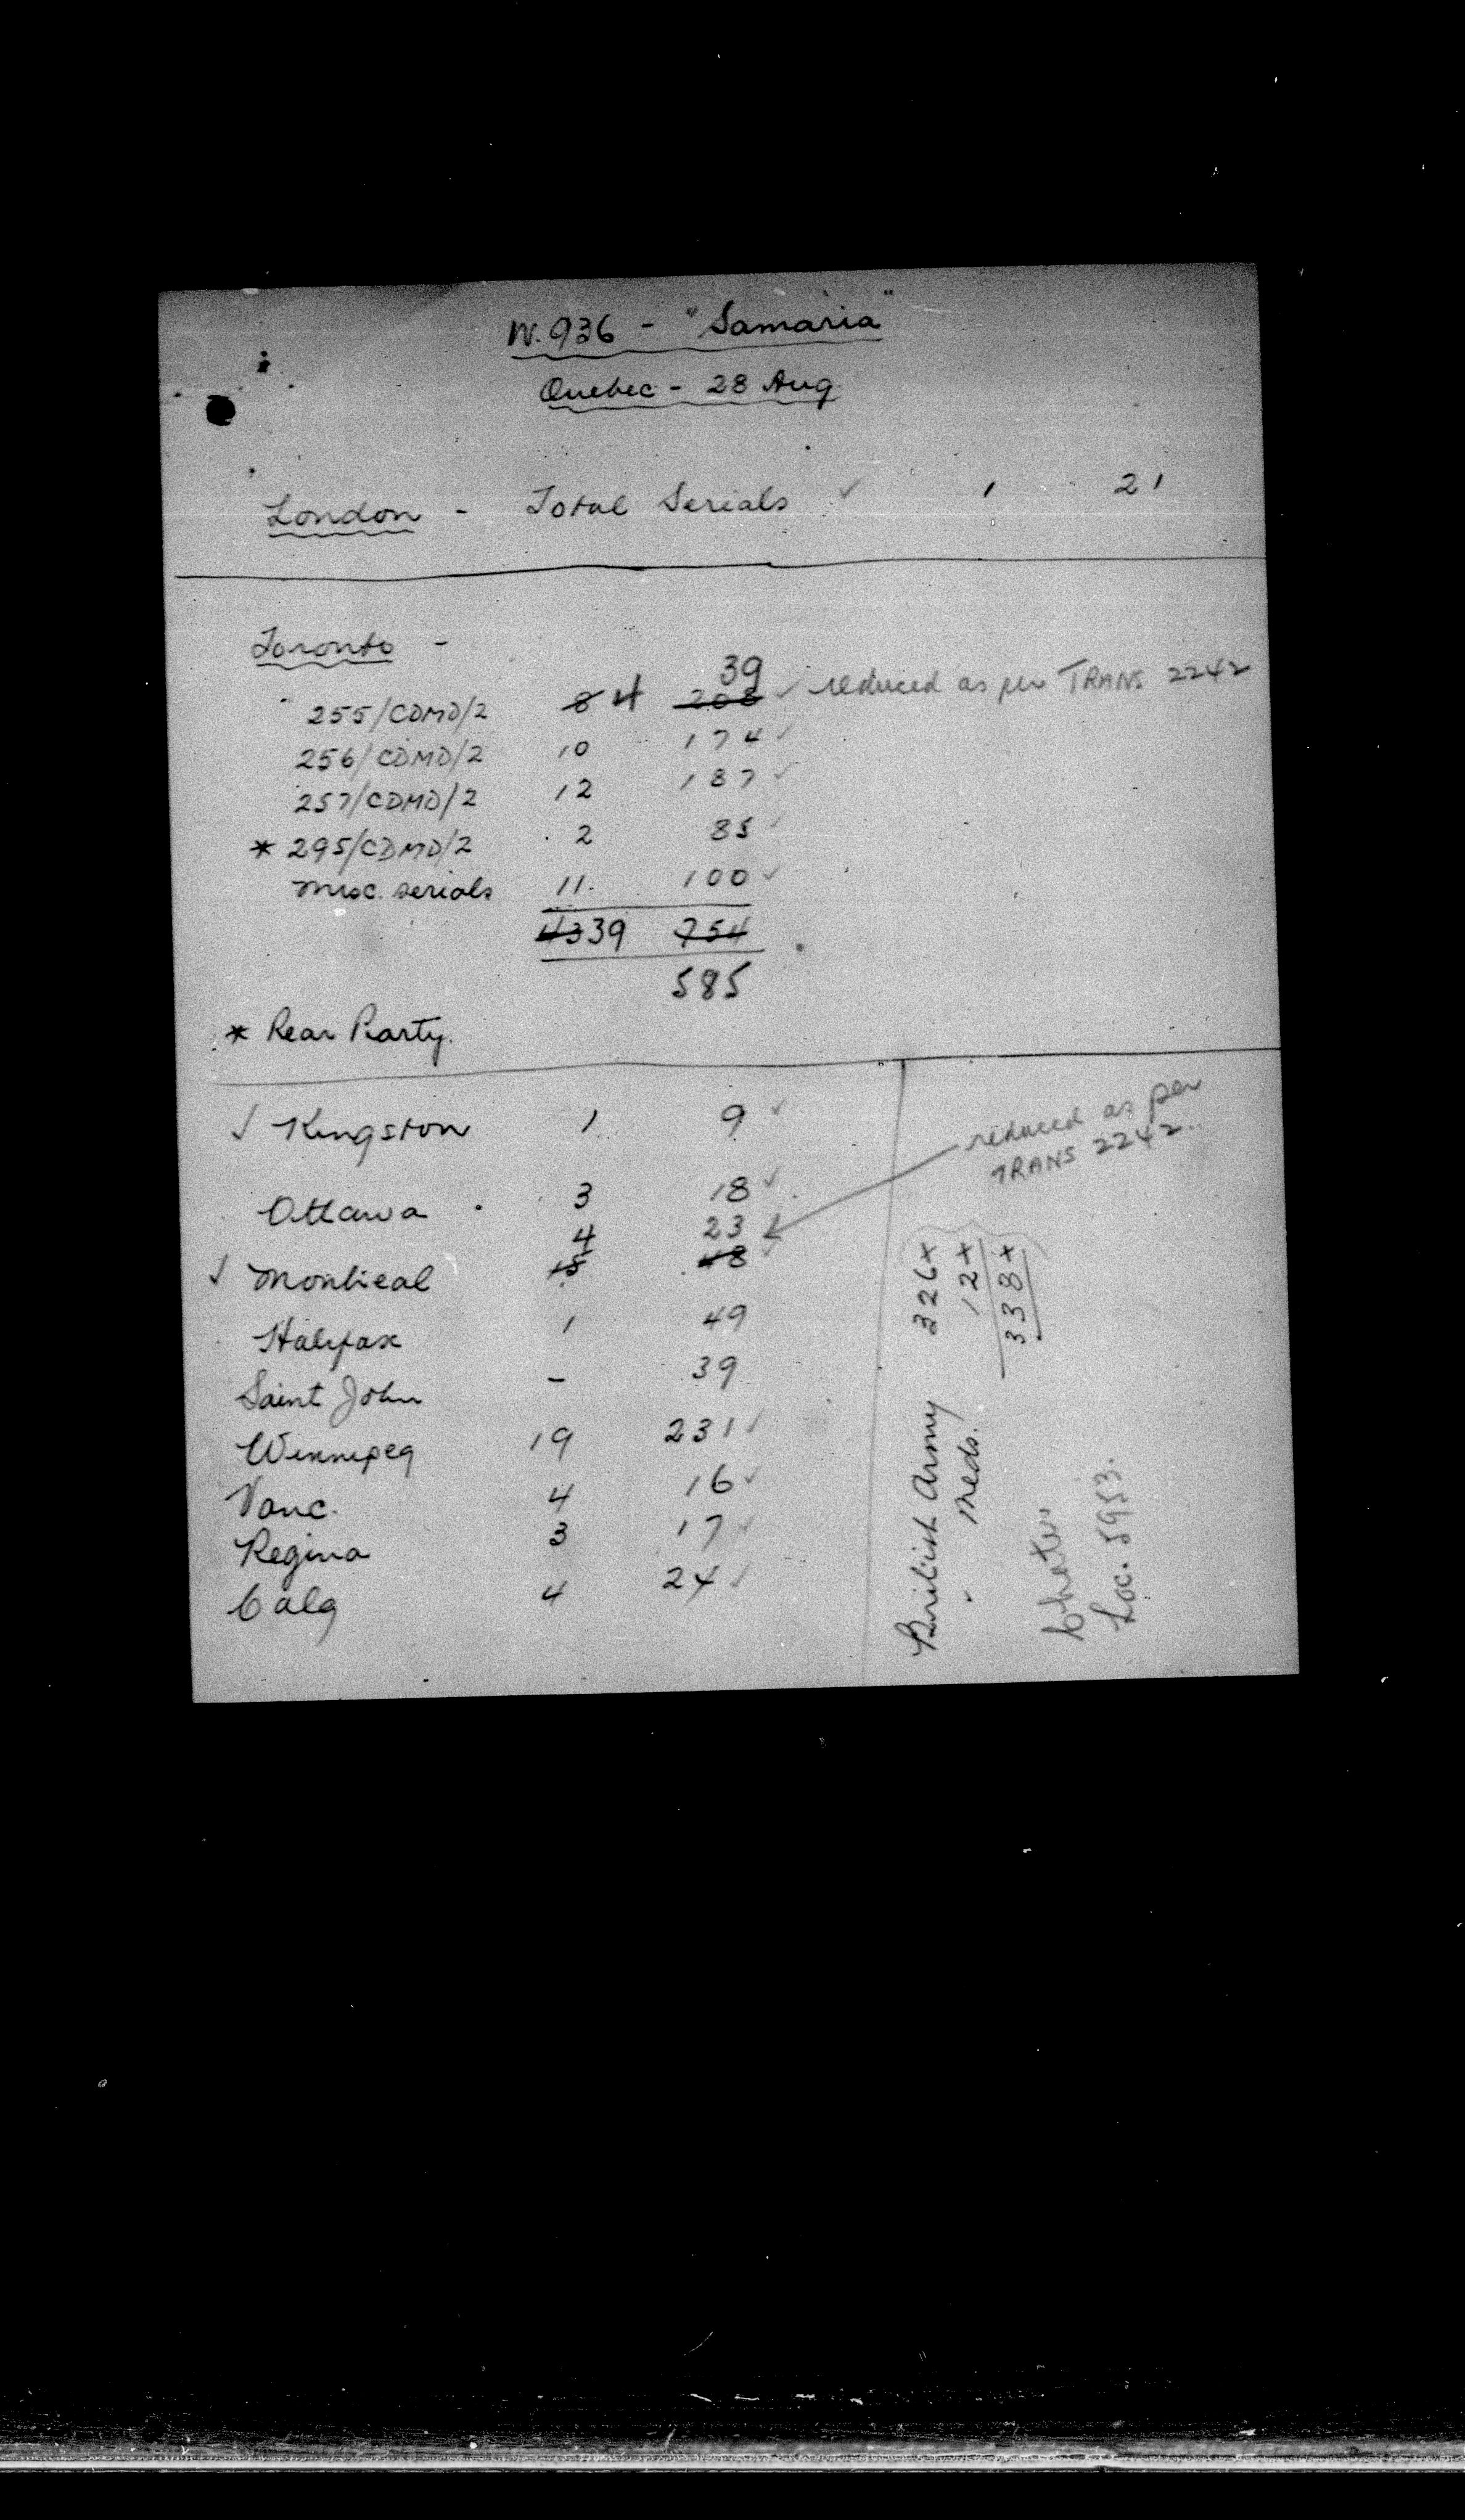 W.936 - "Samaria"
Quebec - 28 Aug
London - Total Serials ✓ 1 21
Toronto -
39
255/CDMD/2 8 4 208 ✓ reduced as per TRANS 2242
256/CDMD/2 10 174 ✓
257/CDMD/2 12 187 ✓
* 295/CDMD/2 2 85 ✓
Misc. serials 11. 100 ✓
43 39 754
585
* Rear Party.
✓ Kingston 1 9 ✓
reduced as per
TRANS 2242.
Ottawa 3 18 ✓
4 23
✓ Montreal 48 ✓
Halifax 1 49
Saint John - 39
Winnipeg 19 231 ✓
Vanc. 4 16 ✓
Regina 3 17 ✓
Calg 4 24 ✓
British Army 326+
" Meds. 12+
338+
Loc. 5953.